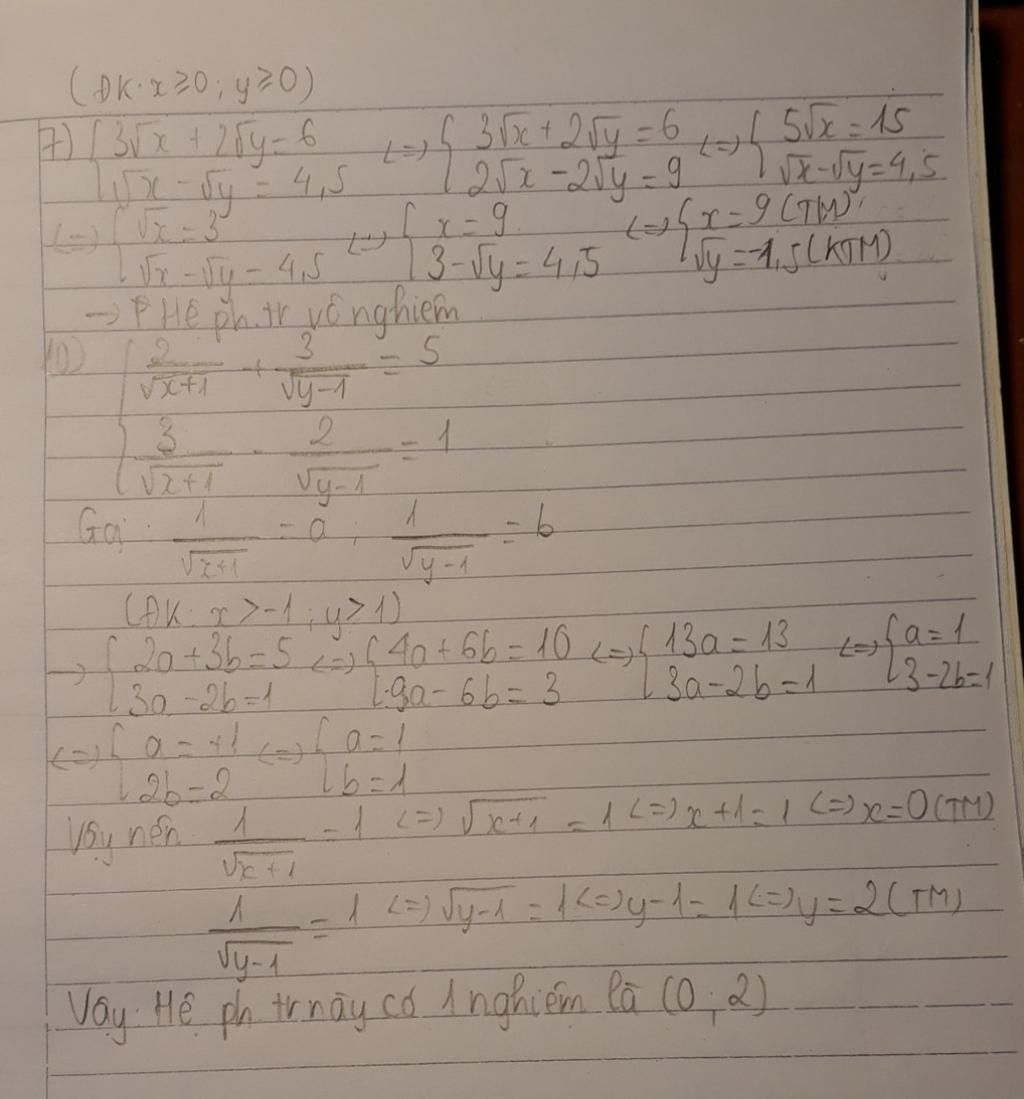 (ĐK: x ≥ 0; y ≥ 0)
7) { 3√x + 2√y = 6 ; √x - √y = 4,5 <=> { 3√x + 2√y = 6 ; 2√x - 2√y = 9 <=> { 5√x = 15 ; √x - √y = 4,5
<=> { √x = 3 ; √x - √y = 4,5 <=> { x = 9 ; 3 - √y = 4,5 <=> { x = 9 (TM) ; √y = -1,5 (KTM)
→ Hê ph.tr vô nghiêm
10) { 2/√(x+1) + 3/√(y-1) = 5
3/√(x+1) - 2/√(y-1) = 1
Goi: 1/√(x+1) = a ; 1/√(y-1) = b
(ĐK: x > -1 ; y > 1)
→ { 2a + 3b = 5 ; 3a - 2b = 1 <=> { 4a + 6b = 10 ; 9a - 6b = 3 <=> { 13a = 13 ; 3a - 2b = 1 <=> { a = 1 ; 3 - 2b = 1
<=> { a = +1 ; 2b = 2 <=> { a = 1 ; b = 1
Vây nên 1/√(x+1) = 1 <=> √(x+1) = 1 <=> x + 1 = 1 <=> x = 0 (TM)
1/√(y-1) = 1 <=> √(y-1) = 1 <=> y - 1 = 1 <=> y = 2 (TM)
Vây: Hê ph tr này có 1 nghiêm là (0 ; 2)